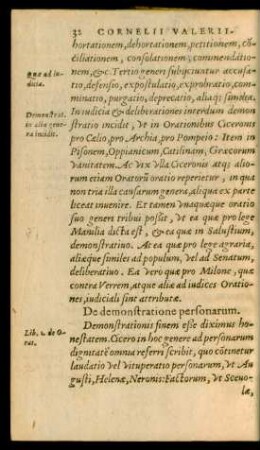 32 CORNELII VALERII
hortationem, dehortationem, petitionem, cō-
ciliationem, consolationem, commendatio-
nem, &c. Tertio generi subijciuntur accusa-
tio, defensio, expostulatio, exprobratio, com-
minatio, purgatio, deprecatio, aliaq; similia.
Quæ ad iu-
dicia.
In iudicia & deliberationes interdum demon-
stratio incidit, vt in Orationibus Ciceronis
pro Cælio, pro Archia, pro Pompeio: Item in
Pisonem, Oppianicum, Catilinam, Græcorum
vanitatem. Ac vix vlla Ciceronis atq; alio-
rum etiam Oratorū oratio reperietur, in qua
non tria illa causarum genera, aliqua ex parte
liceat inuenire. Et tamen vnaquæque oratio
suo generi tribui possit, vt ea quæ pro lege
Manilia dicta est, & ea quæ in Salustium,
demonstratiuo. At ea quæ pro lege agraria,
aliæque similes ad populum, vel ad Senatum,
deliberatiuo. Ea vero quæ pro Milone, quæ
contra Verrem, atque aliæ ad iudices Oratio-
nes, iudiciali sint attributæ.
Demonstrat.
in alia gene-
ra incidit.
De demonstratione personarum.
Demonstrationis finem esse diximus ho-
nestatem. Cicero in hoc genere ad personarum
dignitatē omnia referri scribit, quo cōtinetur
laudatio vel vituperatio personarum, vt Au-
gusti, Helenæ, Neronis: Factorum, vt Sceuo-
læ,
Lib. 2. de O-
rat.